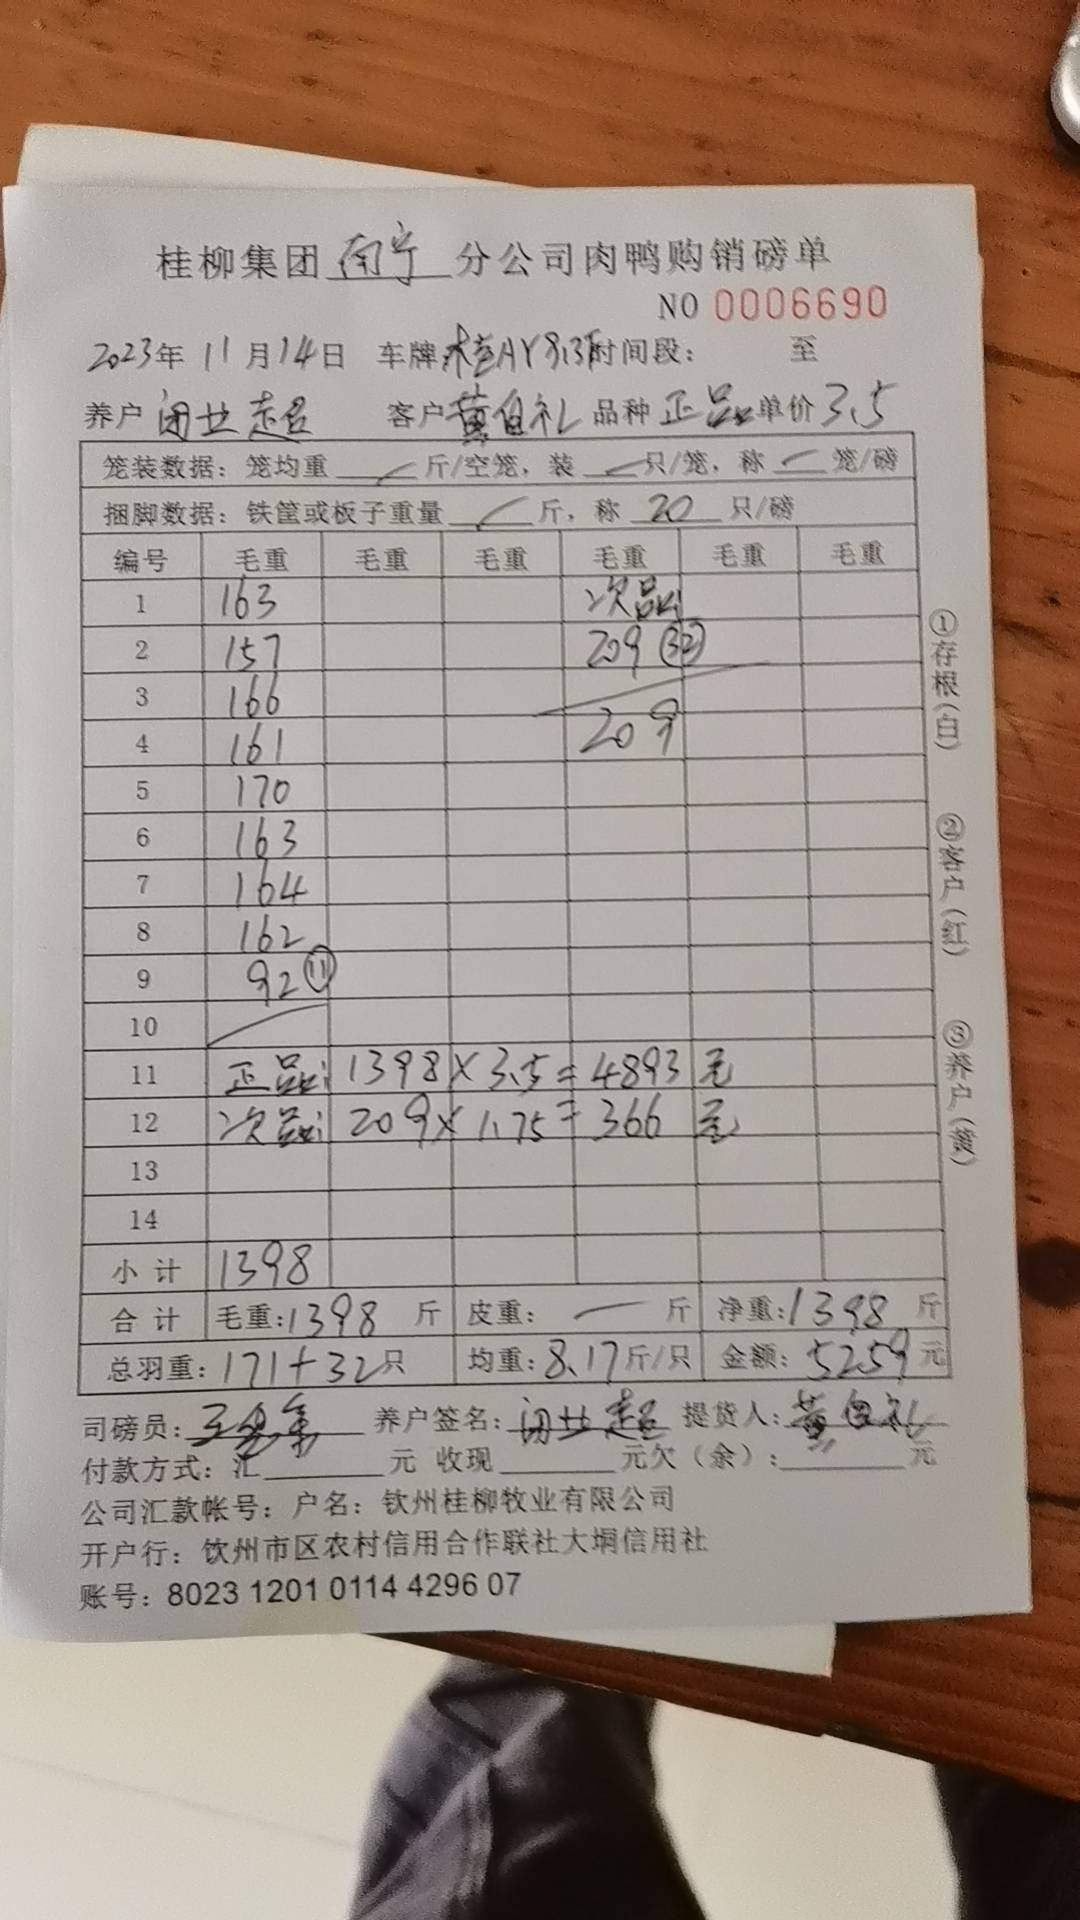 桂柳集团南宁分公司肉鸭购销磅单
NO 0006690
2023年11月14日 车牌桂AY 时间段: 至
养户 闭业超 客户 黄自礼 品种 正品 单价 3.5
笼装数据:笼均重 / 斤/空笼,装 / 只/笼,称 / 笼/磅
捆脚数据:铁筐或板子重量 / 斤,称 20 只/磅
编号 毛重 毛重 毛重 毛重 毛重 毛重
1 163 次品:
2 157 209 (32)
3 166
4 161 209
5 170
6 163
7 164
8 162
9 92 (11)
10
11 正品: 1398 × 3.5 = 4893 元
12 次品: 209 × 1.75 = 366 元
13
14
小计 1398
合计 毛重:1398 斤 皮重: 一 斤 净重:1398 斤
总羽重:171+32只 均重:8.17斤/只 金额:5259元
司磅员: 养户签名:闭业超 提货人:黄自礼
付款方式:汇 元 收现 元欠(余): 元
公司汇款帐号:户名:钦州桂柳牧业有限公司
开户行:钦州市区农村信用合作联社大垌信用社
账号:8023 1201 0114 4296 07
①存根(白)
②客户(红)
③养户(黄)